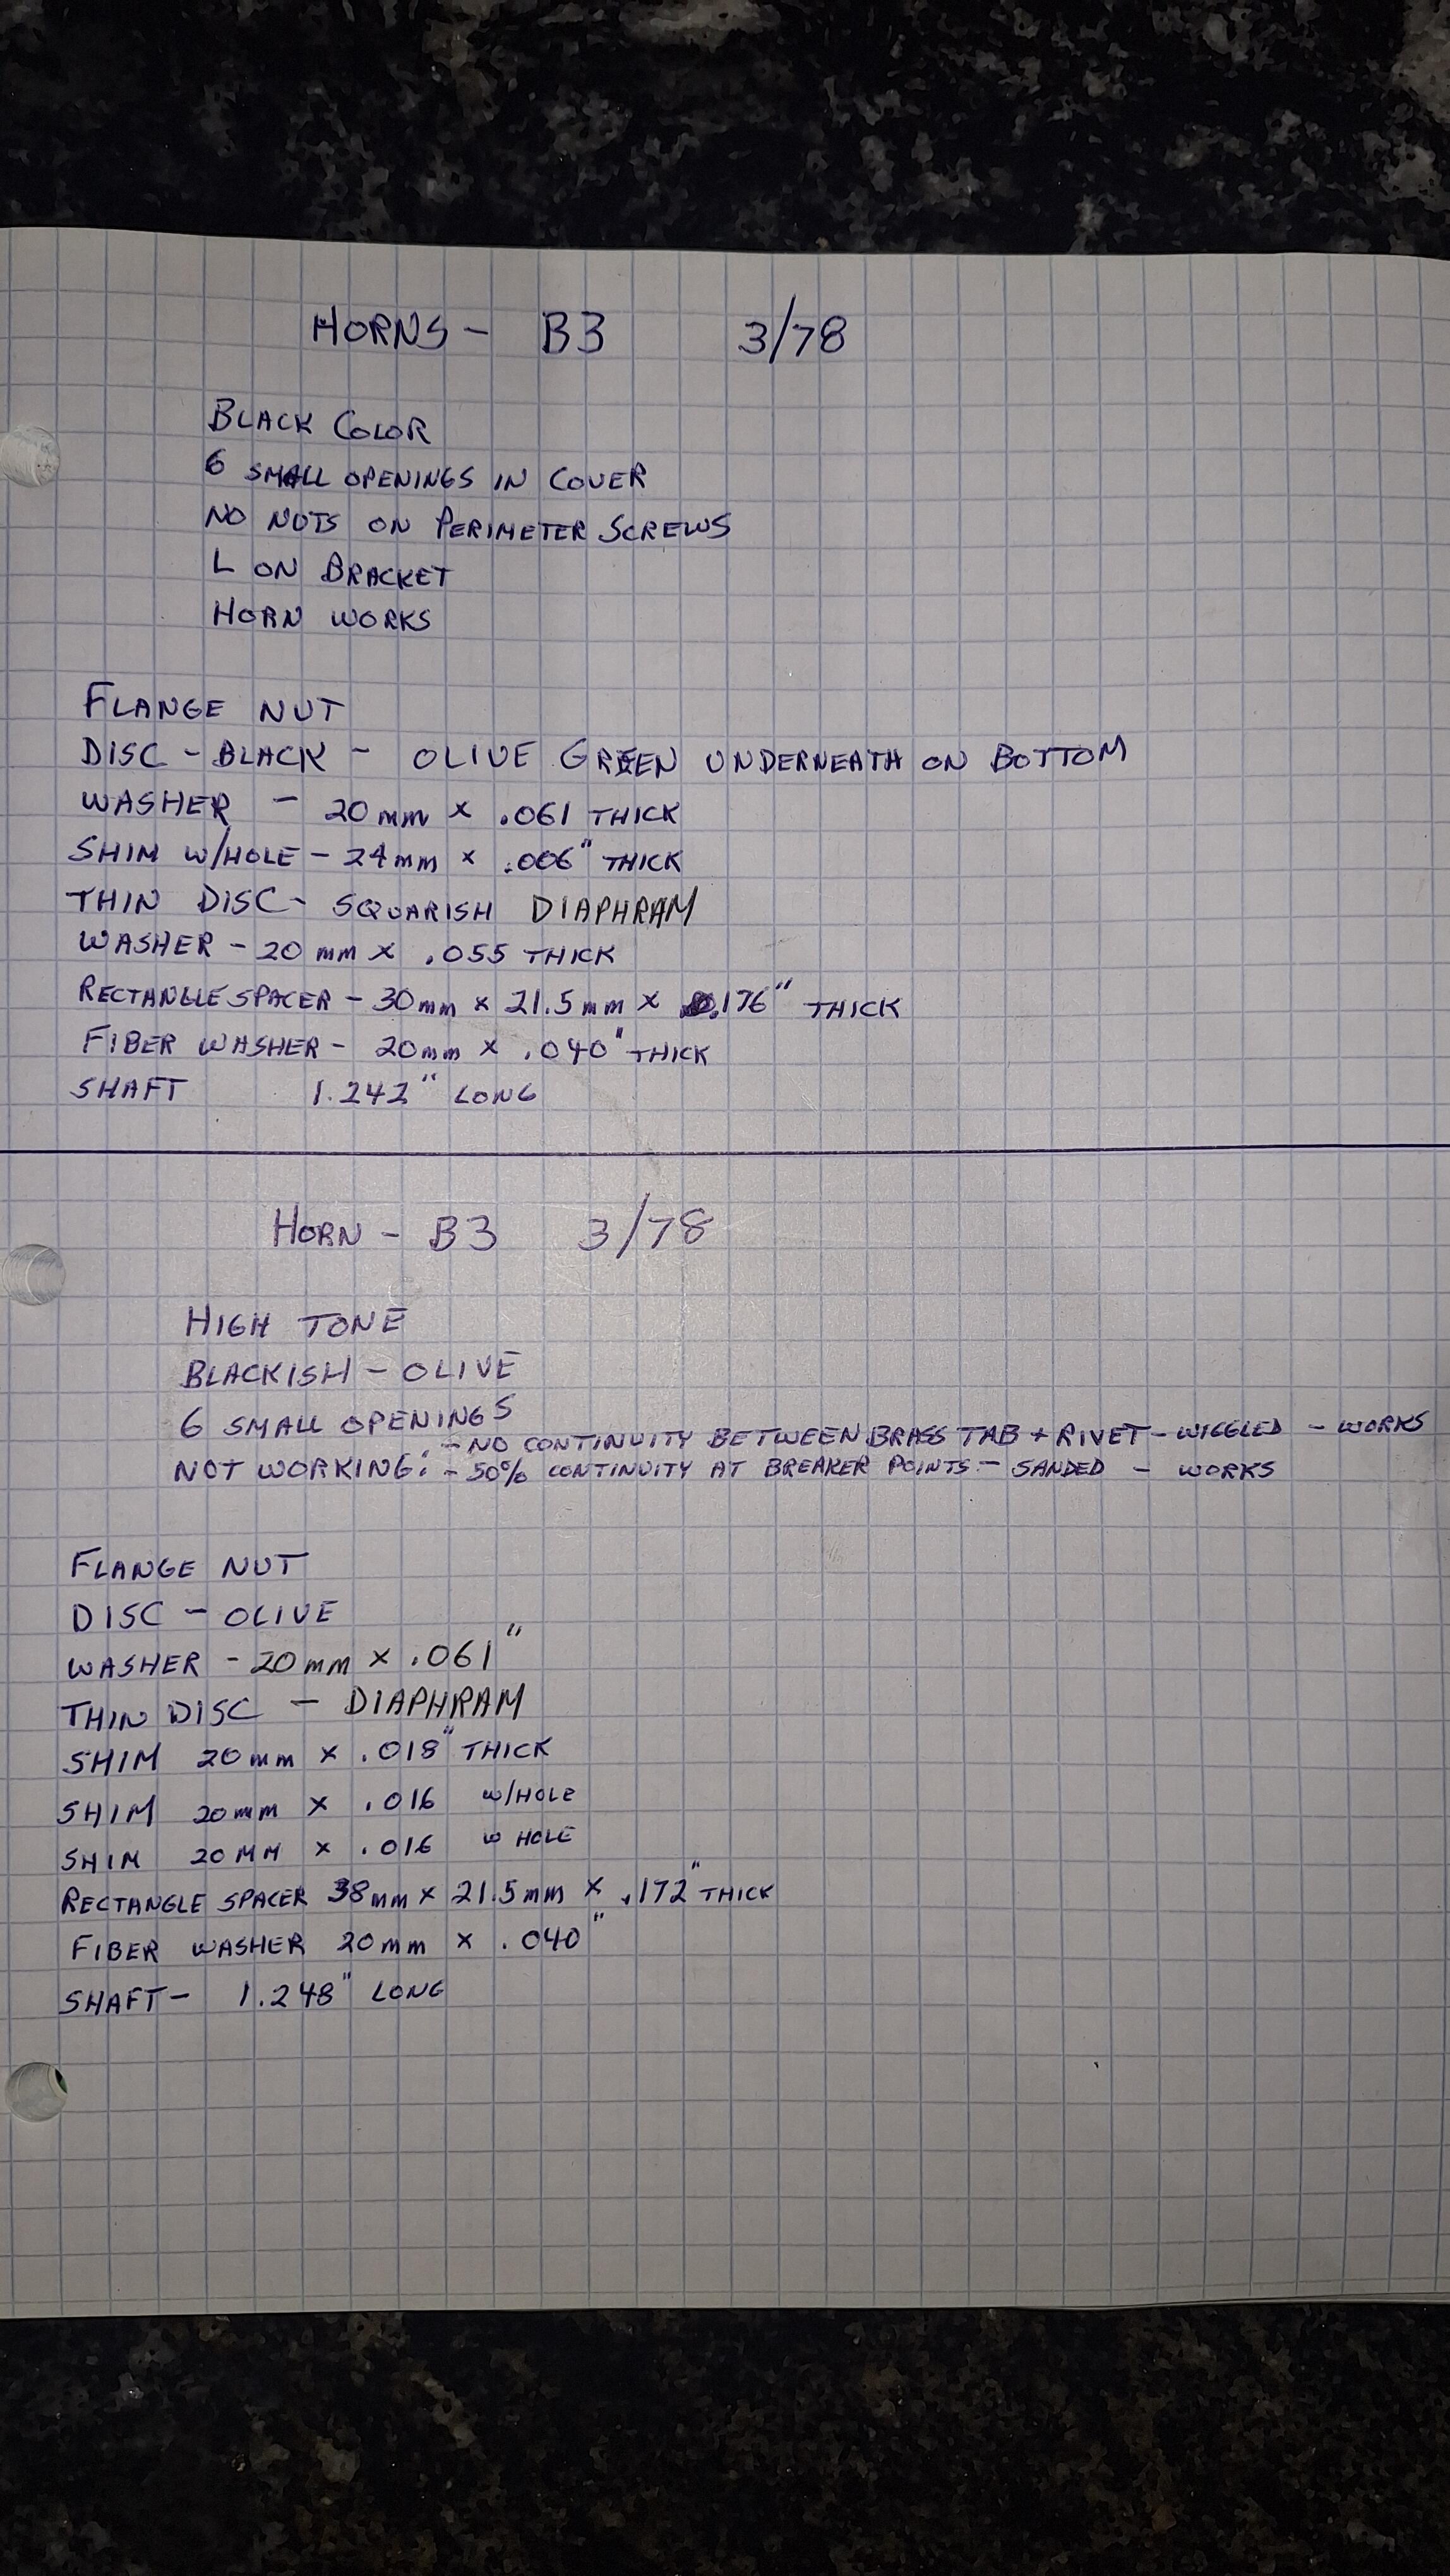 HORNS - B3 3/78
BLACK COLOR
6 SMALL OPENINGS IN COVER
NO NUTS ON PERIMETER SCREWS
L ON BRACKET
HORN WORKS
FLANGE NUT
DISC - BLACK - OLIVE GREEN UNDERNEATH ON BOTTOM
WASHER - 20mm x .061 THICK
SHIM W/HOLE - 24mm x .006" THICK
THIN DISC - SQUARISH DIAPHRAM
WASHER - 20mm x .055 THICK
RECTANGLE SPACER - 30mm x 21.5mm x .176" THICK
FIBER WASHER - 20mm x .040" THICK
SHAFT 1.242" LONG
HORN - B3 3/78
HIGH TONE
BLACKISH - OLIVE
6 SMALL OPENINGS
- NO CONTINUITY BETWEEN BRASS TAB + RIVET - WIGGLED - WORKS
NOT WORKING: - 50% CONTINUITY AT BREAKER POINTS - SANDED - WORKS
FLANGE NUT
DISC - OLIVE
WASHER - 20mm x .061"
THIN DISC - DIAPHRAM
SHIM 20mm x .018" THICK
SHIM 20mm x .016 W/HOLE
SHIM 20MM x .016 W HOLE
RECTANGLE SPACER 38mm x 21.5mm x .172" THICK
FIBER WASHER 20mm x .040"
SHAFT - 1.248" LONG